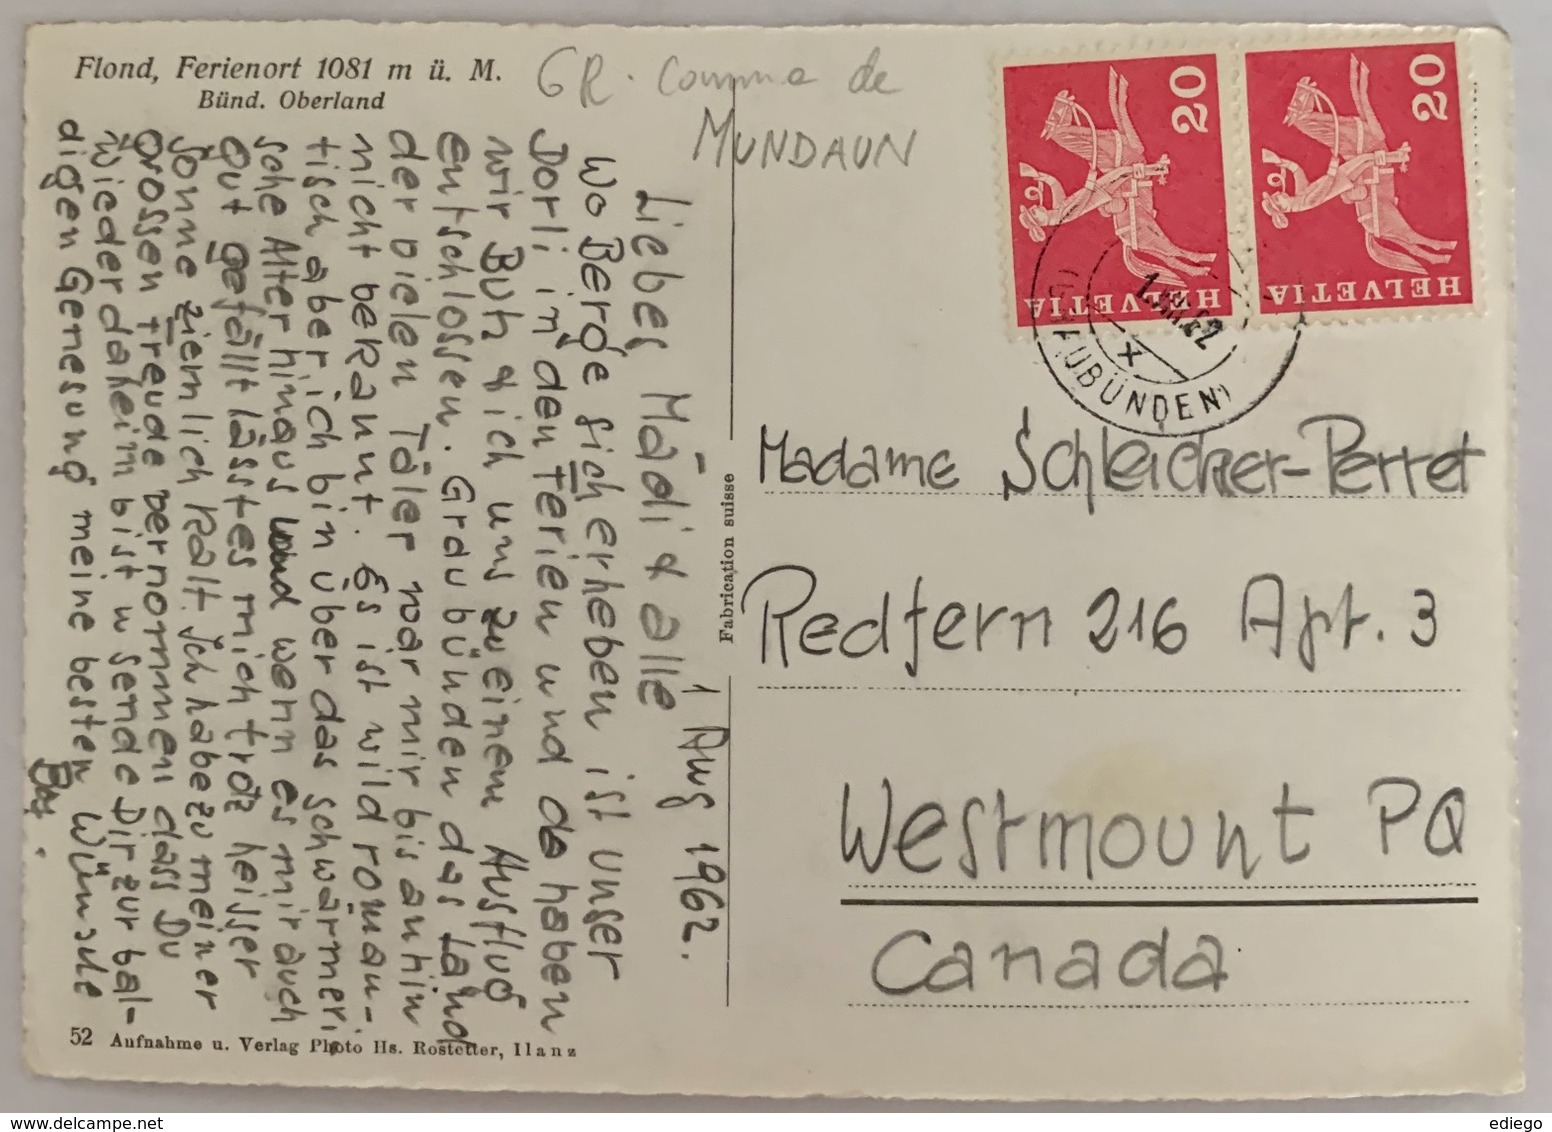 Flond, Ferienort 1081 m ü. M.
Bünd. Oberland
GR. Comune de
MUNDAUN
1 Aug 1962.
Liebes Mädi & alle
Wo Berge sich erheben ist unser
Dorli in den Ferien und da haben
wir Buh & ich uns zu einem Ausflug
entschlossen. Graubünden das Land
der vielen Täler war mir bis anhin
nicht bekannt. Es ist wild roman-
tisch aber ich bin über das schwärmeri
sche Alter hinaus und wenn es mir auch
gut gefällt lässt es mich trotz heisser
Sonne ziemlich kalt. Ich habe zu meiner
grossen Freude vernommen dass Du
wieder daheim bist u sende Dir zur bal-
digen Genesung meine besten Wünsche
52 Aufnahme u. Verlag Photo Hs. Rostetter, Ilanz
Fabrication suisse
20
HELVETIA
20
HELVETIA
(GRAUBÜNDEN)
Madame Schleicher-Perret
Redfern 216 Apt. 3
Westmount PQ
Canada
ediego